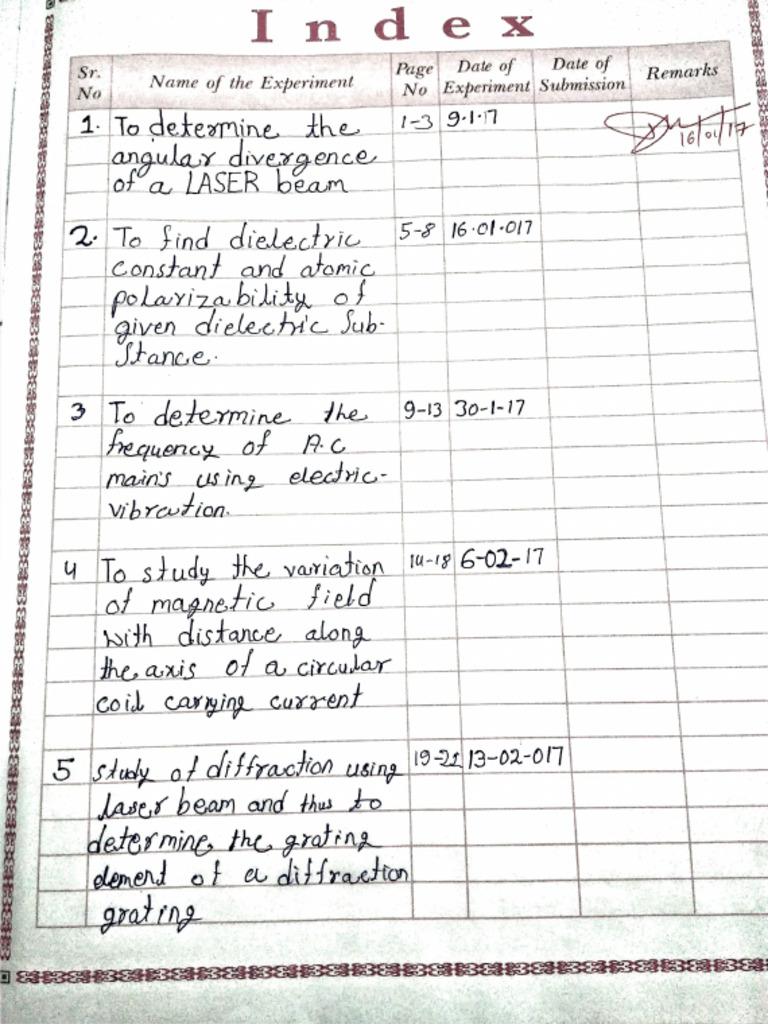 Index
Sr. No Name of the Experiment Page No Date of Experiment Date of Submission Remarks
1. To determine the 1-3 9.1.17
16/01/17
angular divergence
of a LASER beam
2. To find dielectric 5-8 16.01.017
constant and atomic
polarizability of
given dielectric Sub-
Stance.
3 To determine the 9-13 30-1-17
frequency of A.C
main's using electric-
vibration.
4 To study the variation 14-18 6-02-17
of magnetic field
with distance along
the axis of a circular
coil carrying current
5 study of diffraction using 19-21 13-02-017
laser beam and thus to
determine the grating
element of a diffraction
grating